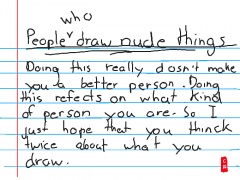 who
People ˅ draw nude things
Doing this really dosn't make
you a better person. Doing
this refects on what kind
of person you are. So I
just hope that you thinck
twice about what you
draw.